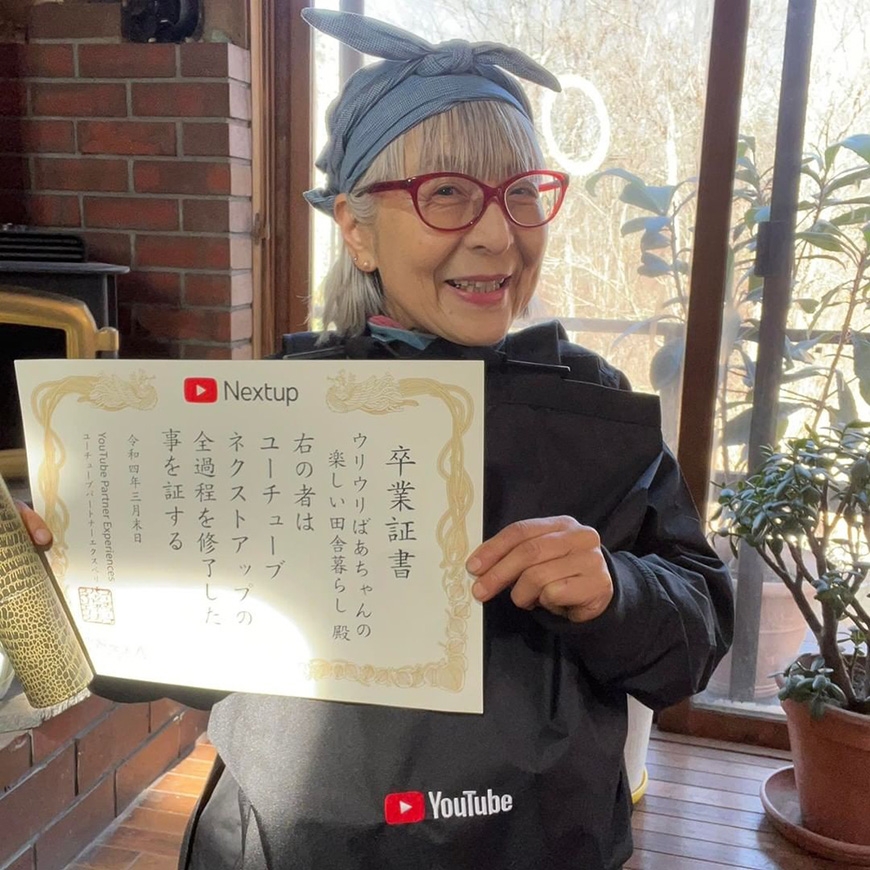 Nextup
卒業証書
ウリウリばあちゃんの
楽しい田舎暮らし 殿
右の者は
ユーチューブ
ネクストアップの
全過程を修了した
事を証する
令和四年三月末日
YouTube Partner Experiences
ユーチューブパートナーエクスペリ
YouTube